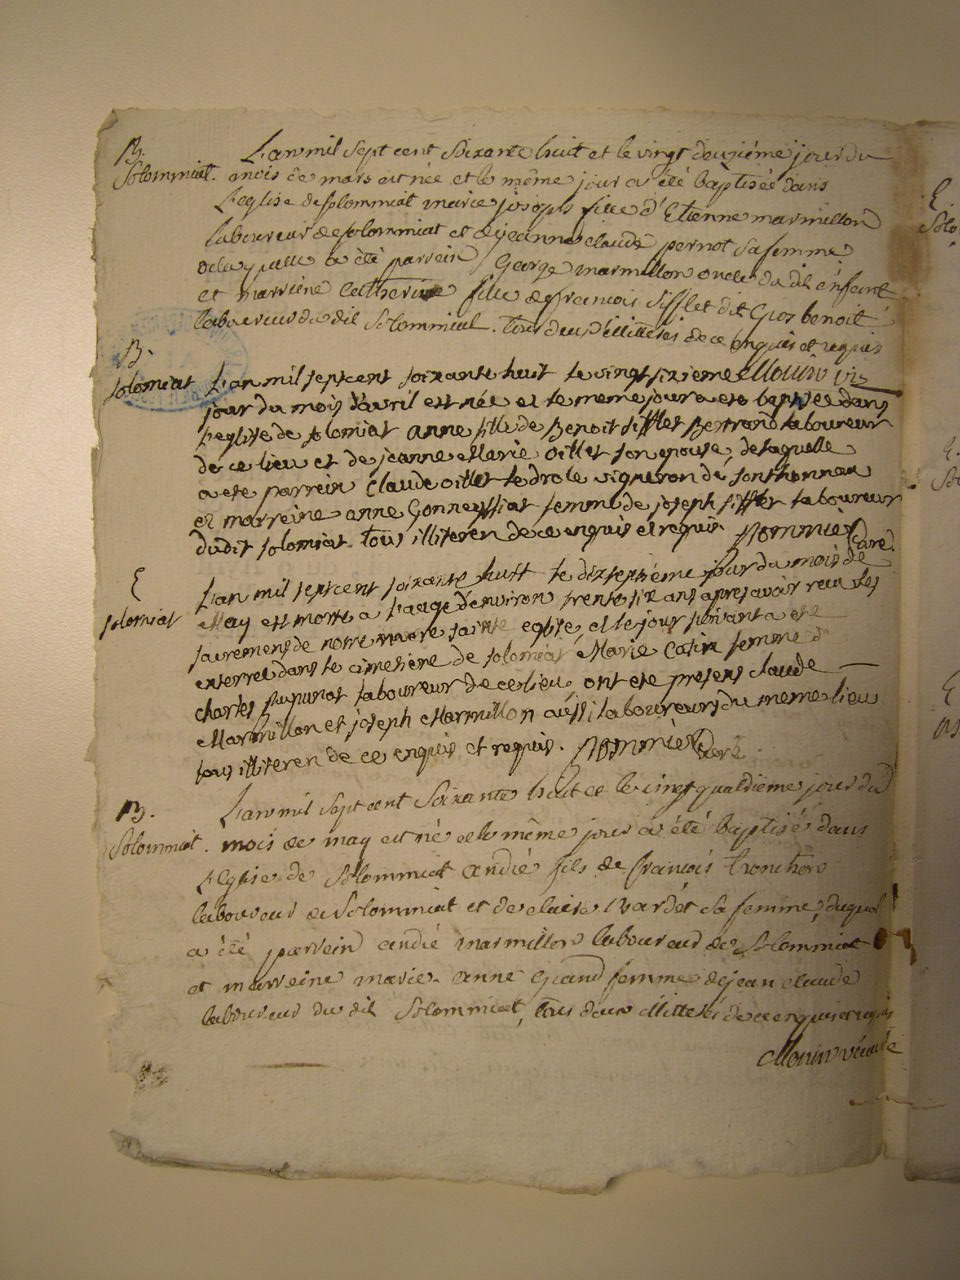 B.
Solommiat.
L'an mil sept cent soixante huit et le vingt deuxiéme jour du
mois de mars est née et le même jour a été baptisée dans
l'eglise de Solommiat marie joseph fille d'Etienne marmillon
laboureur de Solommiat et de jeanne claude pernot sa femme
de laquelle a été parrein George marmillon oncle du dit enfant
et marreine Catherine fille de francois Sifflet dit Gros benoit
laboureur du dit Solommiat. tous deux illitterés de ce enquis et requis
B.
Solomiat
Mouin
L'an mil septcent soixante huit le vingt sixieme
jour du mois d'avril est née et le meme jour a ete baptisee dans
l'eglise de solomiat anne fille de Benoit sifflet Bertrand laboureur
de ce lieu et de jeanne Marie oillet son epouse, de laquelle
a ete parrein Claude oillet ledrole vigneron de
et marreine anne femme de joseph sifflet laboureur
dudit solomiat. tous illiteren de ce enquis et requis Nommier
E
solomiat
L'an mil septcent soixante huit le dixseptieme jour du mois de
May est morte a l'aage d'environ trente six ans apres avoir reçu les
sacremens de notre mere sainte eglise, et le jour suivant a ete
enterree dans le cimetiere de solomiat Marie Catin femme d
charles laboureur de ce lieu. ont ete presens claude
Marmillon et joseph Marmillon aussi laboureurs du meme lieu
tous illiteren de ce enquis et requis. Nommier
B.
Solommiat.
L'an mil sept cent soixante huit et le vingt quatrieme jour du
mois de may est né et le même jour a été baptisé dans
l'eglise de Solommiat andré fils de francois tronchon
laboureur de Solommiat et de claire sa femme, duquel
a été parrein andré marmillon laboureur de Solommiat
et marreine marie anne femme de jean claude
laboureur du dit Solommiat, tous deux illitterés de ce enquis et requis
Mouin vicaire